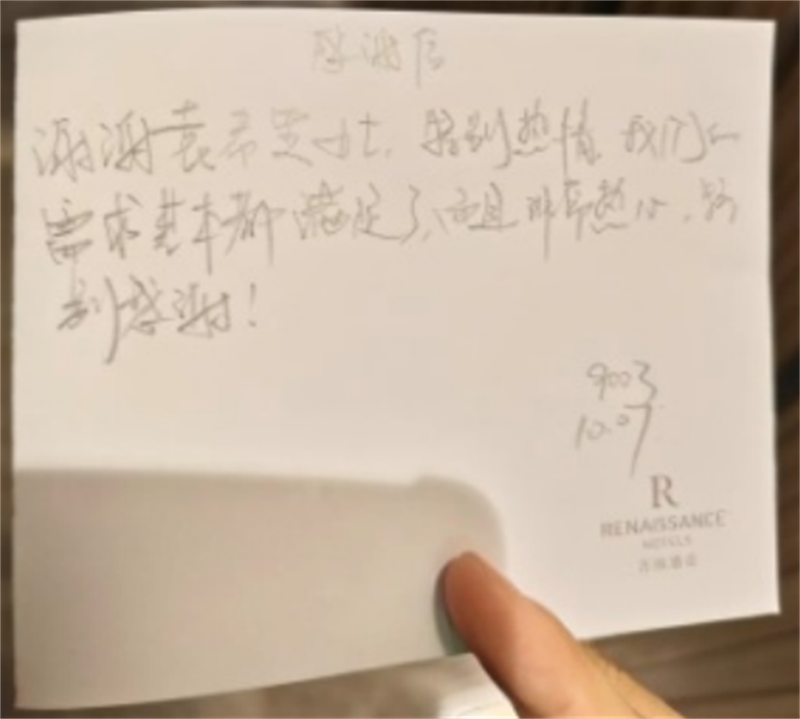 感谢信
谢谢袁希罡女士，特别热情，我们的
需求基本都满足了，而且非常热心，特
别感谢！
9003
10.07
R
RENAISSANCE
HOTELS
万丽酒店